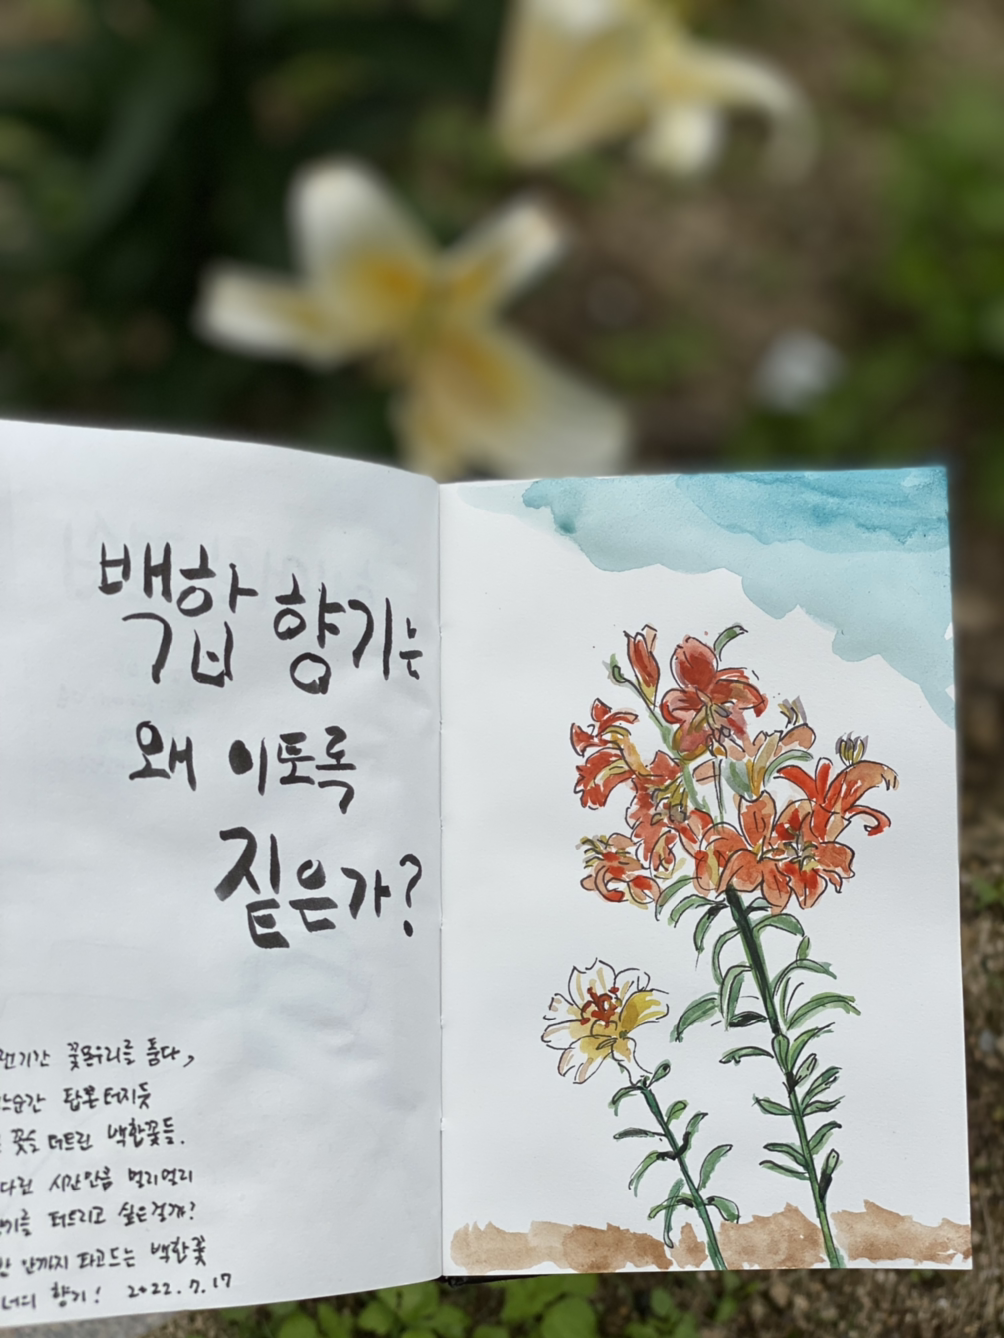 백합 향기는
왜 이토록
짙은가?
꽃몽우리를 품다,
순간 탑폰터지듯
꽃을 터트린 백합꽃들.
시간만큼 멀리멀리
터트리고 싶은걸까?
안까지 파고드는 백합꽃
너의 향기! 2022.7.17